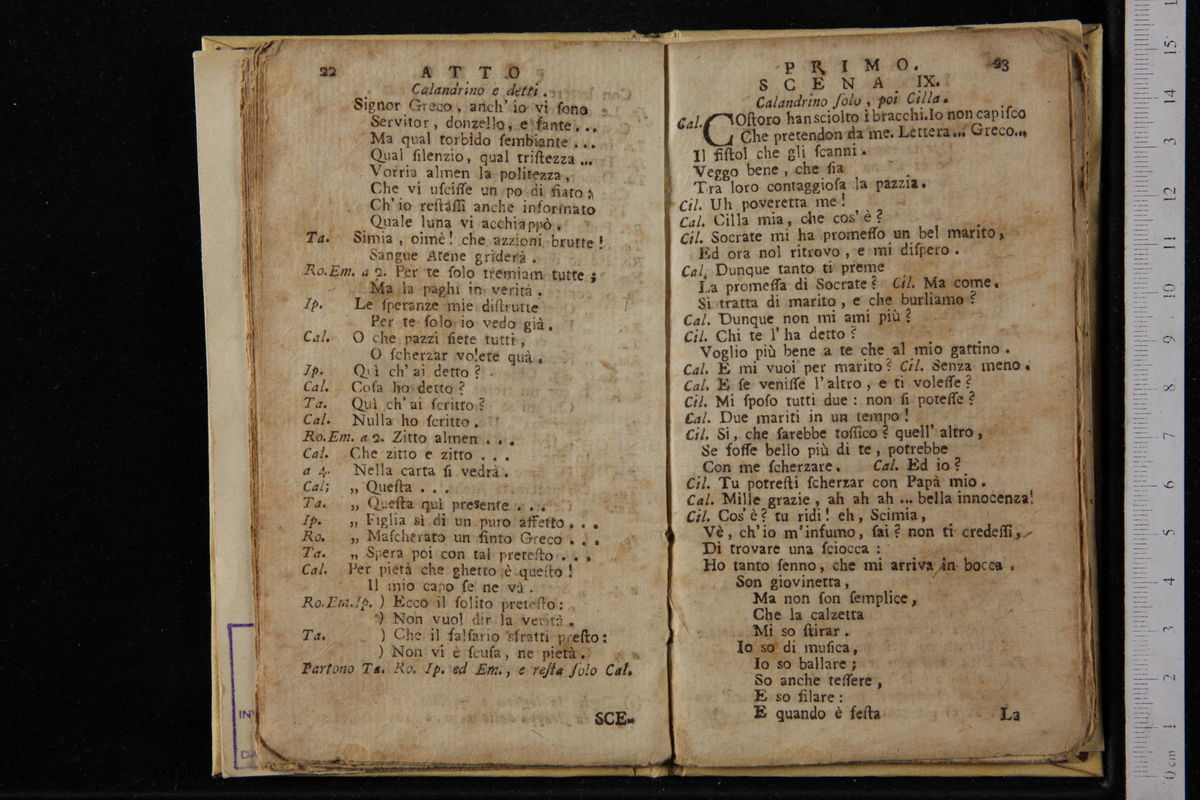 22 ATTO
Calandrino e detti.
Signor Greco, anch' io vi ſono
Servitor, donzello, e fante...
Ma qual torbido ſembiante...
Qual ſilenzio, qual triſtezza...
Vorria almen la politezza,
Che vi uſciſſe un po di fiato;
Ch' io reſtaſſi anche informato
Quale luna vi acchiappò.
Ta. Simia, oimè! che azzioni brutte!
Sangue Atene griderà.
Ro.Em. a 2. Per te ſolo tremiam tutte;
Ma la paghi in verità.
Ip. Le ſperanze mie diſtrutte
Per te ſolo io vedo già.
Cal. O che pazzi ſiete tutti,
O ſcherzar volete quà.
Ip. Quì ch' ai detto?
Cal. Coſa ho detto?
Ta. Quì ch' ai ſcritto?
Cal. Nulla ho ſcritto.
Ro.Em. a 2. Zitto almen...
Cal. Che zitto e zitto...
a 4. Nella carta ſi vedrà.
Cal; „ Queſta...
Ta. „ Queſta quì preſente...
Ip. „ Figlia sì di un puro affetto...
Ro. „ Maſcherato un finto Greco...
Ta. „ Spera poi con tal preteſto...
Cal. Per pietà che ghetto è queſto!
Il mio capo ſe ne và.
Ro.Em.Ip. ) Ecco il ſolito preteſto:
) Non vuol dir la verità.
Ta. ) Che il falſario sfratti preſto:
) Non vi è ſcuſa, ne pietà.
Partono Ta. Ro. Ip. ed Em., e reſta ſolo Cal.
SCE-
PRIMO. 23
SCENA IX.
Calandrino ſolo, poi Cilla.
Cal. COſtoro han sciolto i bracchi. Io non capiſco
Che pretendon da me. Lettera... Greco...
Il fiſtol che gli ſcanni.
Veggo bene, che ſia
Tra loro contaggioſa la pazzia.
Cil. Uh poveretta me!
Cal. Cilla mia, che cos' è?
Cil. Socrate mi ha promeſſo un bel marito,
Ed ora nol ritrovo, e mi diſpero.
Cal. Dunque tanto ti preme
La promeſſa di Socrate? Cil. Ma come.
Si tratta di marito, e che burliamo?
Cal. Dunque non mi ami più?
Cil. Chi te l' ha detto?
Voglio più bene a te che al mio gattino.
Cal. E mi vuoi per marito? Cil. Senza meno.
Cal. E ſe veniſſe l' altro, e ti voleſſe?
Cil. Mi ſpoſo tutti due: non ſi poteſſe?
Cal. Due mariti in un tempo!
Cil. Si, che ſarebbe toſſico? quell' altro,
Se foſſe bello più di te, potrebbe
Con me ſcherzare. Cal. Ed io?
Cil. Tu potreſti ſcherzar con Papà mio.
Cal. Mille grazie, ah ah ah... bella innocenza!
Cil. Cos' è? tu ridi! eh, Scimia,
Vè, ch'io m'infumo, ſai? non ti credeſſi,
Di trovare una ſciocca:
Ho tanto ſenno, che mi arriva in bocca.
Son giovinetta,
Ma non ſon ſemplice,
Che la calzetta
Mi so ſtirar.
Io so di muſica,
Io so ballare;
So anche teſſere,
E so filare:
E quando è feſta
La